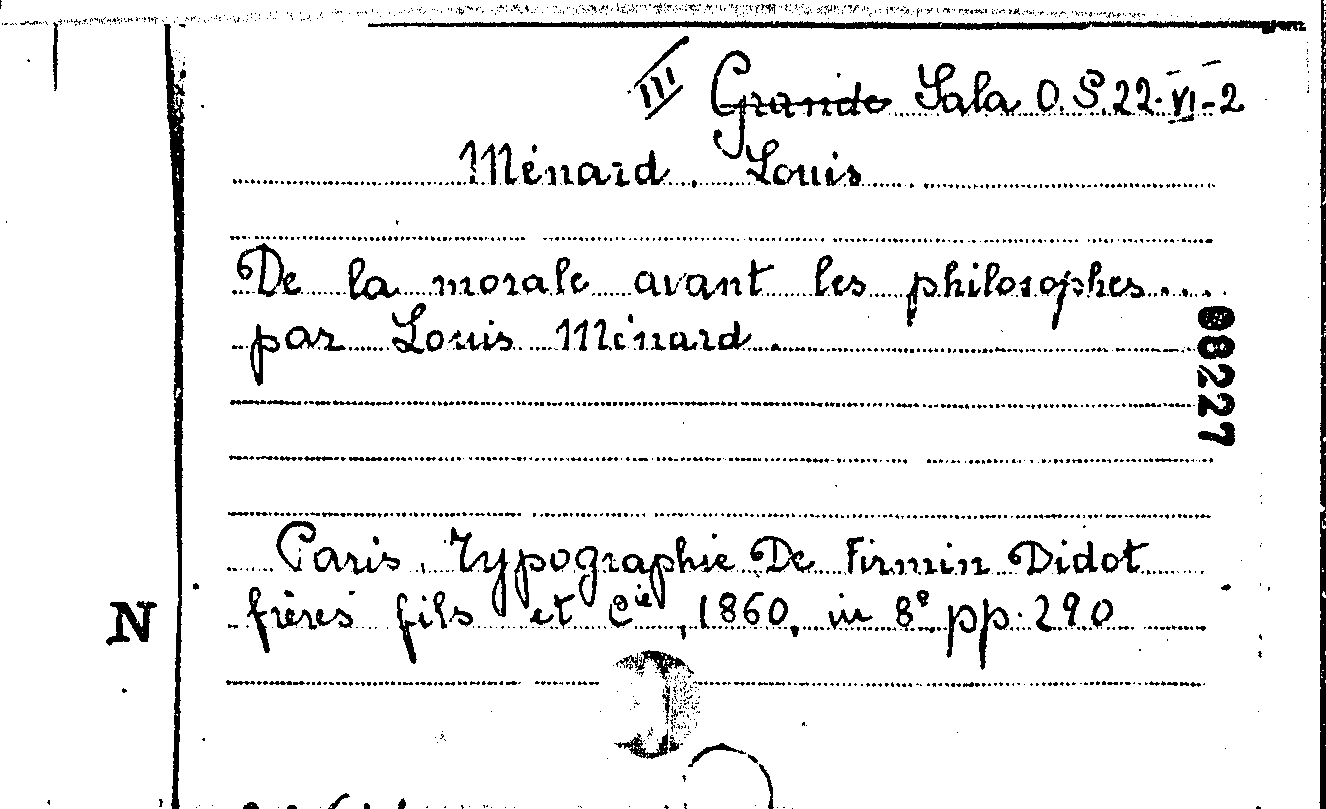 III Grande Sala O.S. 22-VI-2
Ménard, Louis
De la morale avant les philosophes...
par Louis Ménard.
88227
Paris, Typographie De Firmin Didot
N frères fils et Cie, 1860, in 8º pp. 290